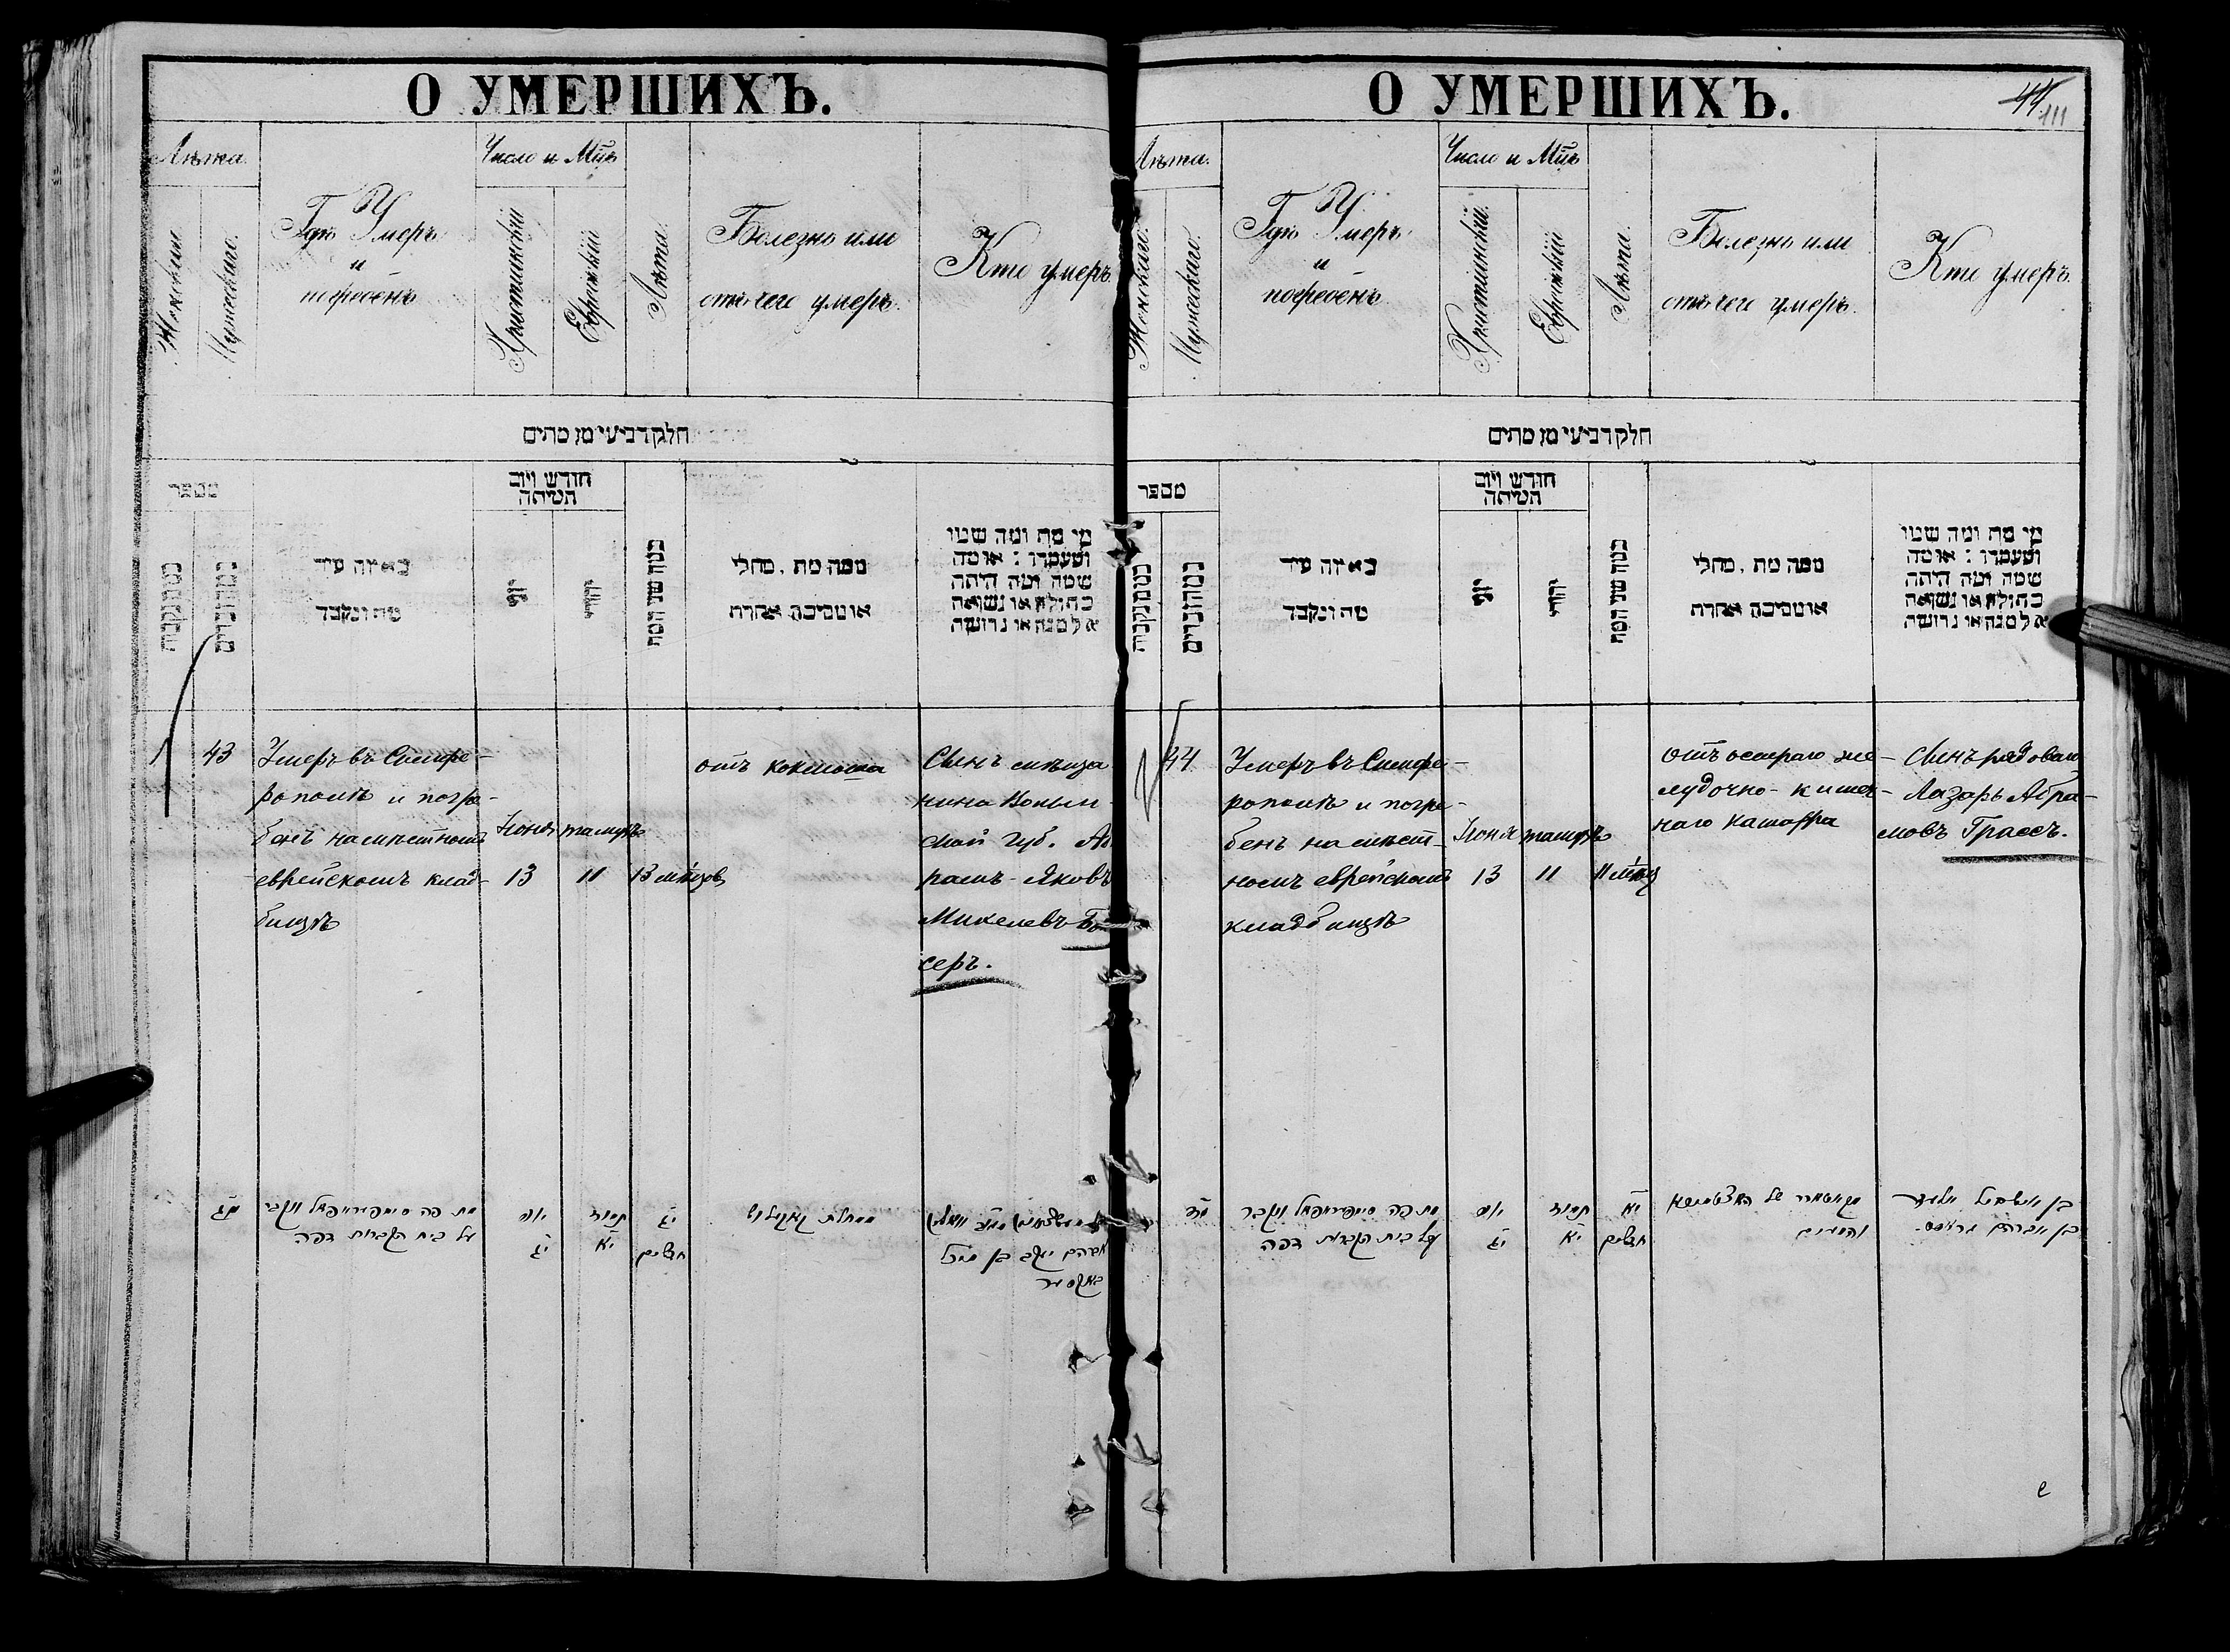 О УМЕРШИХЪ.
Лѣта.
Женскаго
Мужескаго.
Гдѣ Умеръ
и
погребенъ
Число и Мцъ
Христіанскій
Еврейскій
Лѣта.
Болезнь или
отъ чего умеръ.
Кто умеръ.
חלק רביעי מן מתים
מספר
באיזה עיר
מת ונקבר
חודש ויום
המיתה
ממה מת, מחלי
או מסיבה אחרת
מי מת ומה שמו
ומעמדו : או מה
שמה ומה היתה
בתולה או נשואה
אלמנה או גרושה
43
Умеръ въ Симфе-
рополѣ и погре-
бенъ на мѣстномъ
еврейскомъ клад-
бищѣ
Іюня
13
тамузъ
11
13 мѣсяцовъ
отъ коклюша
Сынъ мѣща
нина Волын-
ской губ. Аб
рамъ-Яковъ
Микелевъ
серъ.
מג
מת פה סימפיראפאל ונקבר
על בית הקברות דפה
יוני
יג
תמוז
יא
יג
חדשים
ממחלת
אברהם יעקב בן
О УМЕРШИХЪ.
44
111
Лѣта.
Женскаго.
Мужескаго.
Гдѣ Умеръ
и
погребенъ
Число и Мцъ
Христіанскій.
Еврейскій
Лѣта.
Болезнь или
отъ чего умеръ.
Кто умеръ.
חלק רביעי מן מתים
מספר
באיזה עיר
מת ונקבר
חודש ויום
המיתה
ממה מת, מחלי
או מסיבה אחרת
מי מת ומה שמו
ומעמדו : או מה
שמה ומה היתה
בתולה או נשואה
אלמנה או גרושה
44
Умеръ въ Симфе-
рополѣ и погре-
бенъ на мѣст-
номъ еврейскомъ
кладбищѣ
Іюня
13
тамузъ
11
11 мѣсяц
отъ остраго же-
лудочно-кишеч-
наго катарра
Сынъ рядоваго
Лазарь Абра-
мовъ Грассъ.
מד
מת פה סימפיראפאל ונקבר
על בית הקברות דפה
יוני
יג
תמוז
יא
יא
חדשים
בן אברהם גראסס